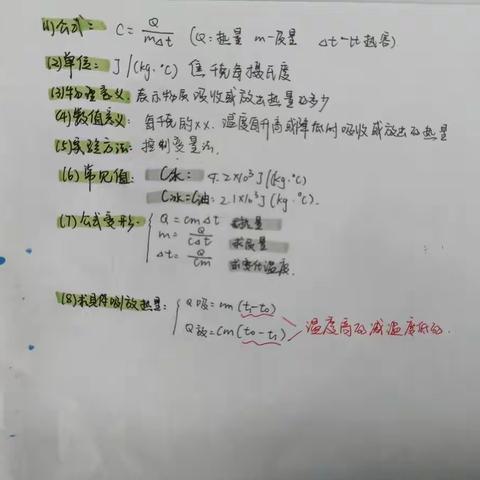 (1)公式: C=Q/mΔt (Q:热量 m-质量 Δt-
(2)单位: J/(kg·℃) 焦千克每摄氏度
(3)物理意义: 表示物质吸收或放出热量的多少
(4)数值意义: 每千克的xx. 温度每升高或降低时吸收或放出的热量
(5)实验方法: 控制变量法.
(6)常见值: C水= 4.2×10³J/(kg·℃)
C冰=C油: 2.1×10³J(kg·℃).
(7)公式变形: Q=cmΔt 求热量
m=Q/CΔt 求质量
Δt=Q/Cm 求变化温度.
(8)求具体吸放热量: Q吸=cm(t₁-t₀)
Q放=Cm(t₀-t₁) 温度高的减温度低的.